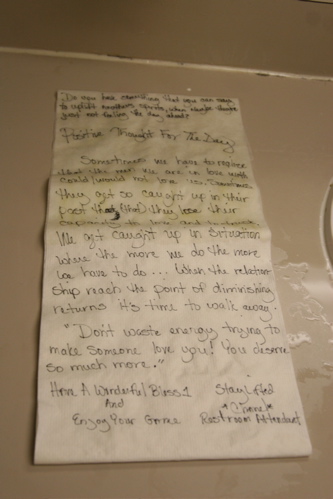 Do you have something that you can say
to uplift another's spirits, when maybe they're
just not feeling the day, ahead?
Positive Thought For The Day
Sometimes we have to realize
that the men we are in love with
could/would not love us. Sometimes
they get so caught up in their
past that (that) they lose their
to love and
We get caught up in situation
where the more we do the more
we have to do... When the relation
ship reach the point of diminishing
returns it's time to walk away.
"Don't waste energy trying to
make someone love you! You deserve
so much more."
Have A Wonderful Bless 1
And
Enjoy Your Game
Stay Lifted
Restroom Attendant